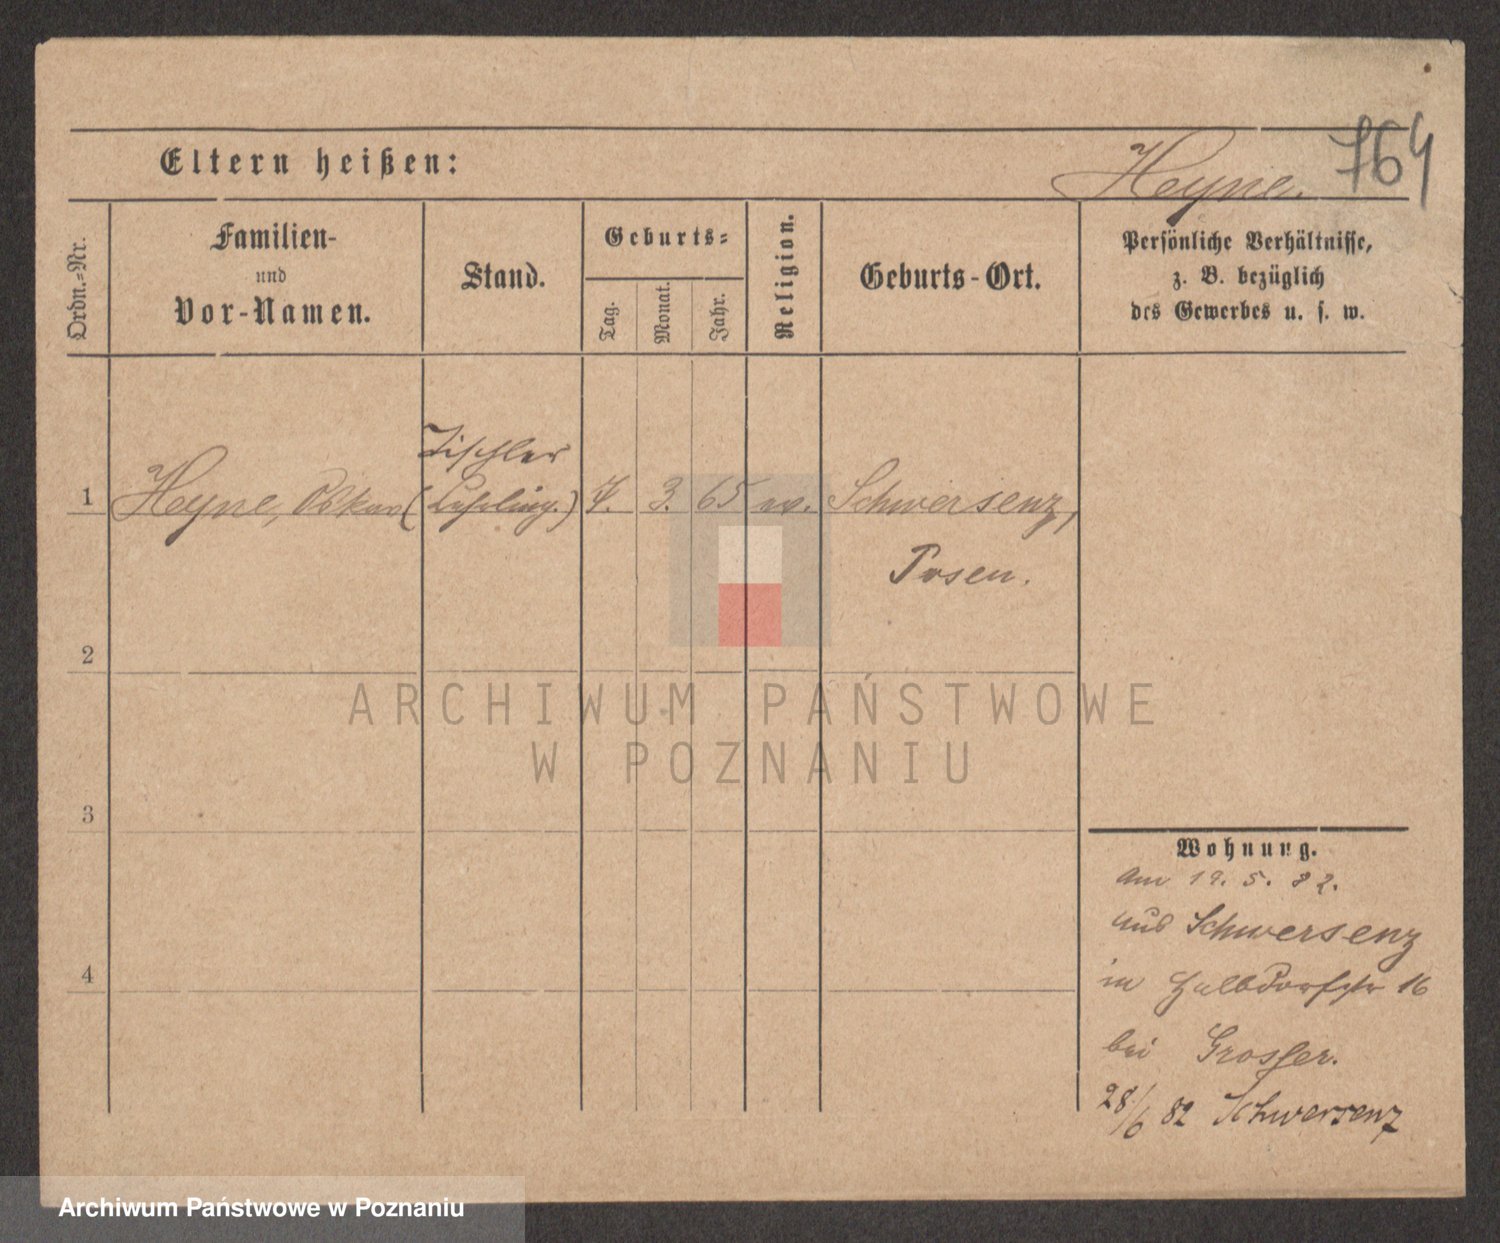 764
Eltern heißen:
Heyne.
Ordn.=Nr.
Familien-
und
Vor-Namen.
Stand.
Geburts=
Tag.
Monat.
Jahr.
Religion.
Geburts-Ort.
Persönliche Verhältnisse,
z. B. bezüglich
des Gewerbes u. s. w.
Tischler
1 Heyne, Oskar (Lehrling.) 7. 3. 65 ev. Schwersenz,
Posen.
2
3
4
Wohnung.
Am 19. 5. 82.
aus Schwersenz
in Halbdorfstr 16
bei Grosser.
28/6 82 Schwersenz
ARCHIWUM PAŃSTWOWE
W POZNANIU
Archiwum Państwowe w Poznaniu